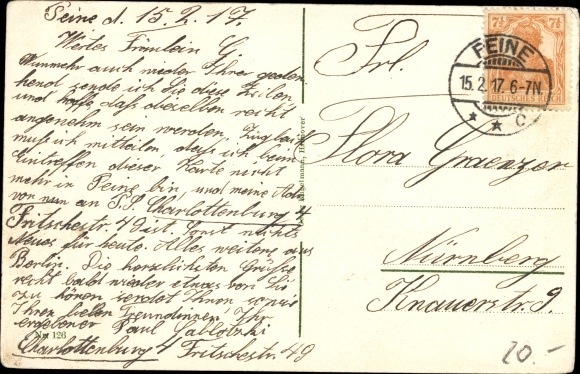 Peine d. 15.2.17.
Wertes Fräulein G
Nunmehr auch wieder Ihrer geden
kend sende ich Sie diese Zeilen
und hoffe, daß dieselben recht
angenehm sein werden. Zugleich
muß ich mitteilen daß ich beim
Eintreffen dieser Karte nicht
mehr in Peine bin, und meine Adr.
von nun an Charlottenburg 4
Fritschestr. 49 ist. Sonst nichts
Neues für heute. Alles weitere aus
Berlin. Die herzlichsten Grüße
recht bald wieder etwas von Sie
zu hören sendet Ihnen sowie
Ihren lieben Freundinnen Ihr
ergebener Paul
Charlottenburg 4 Fritschestr. 49
No 126
Hannover
Frl.
Flora Graenzer
Nürnberg
Knauerstr. 9.
PEINE
15.2.17. 6-7N.
* * c
7½ 7½
DEUTSCHES REICH
20.-